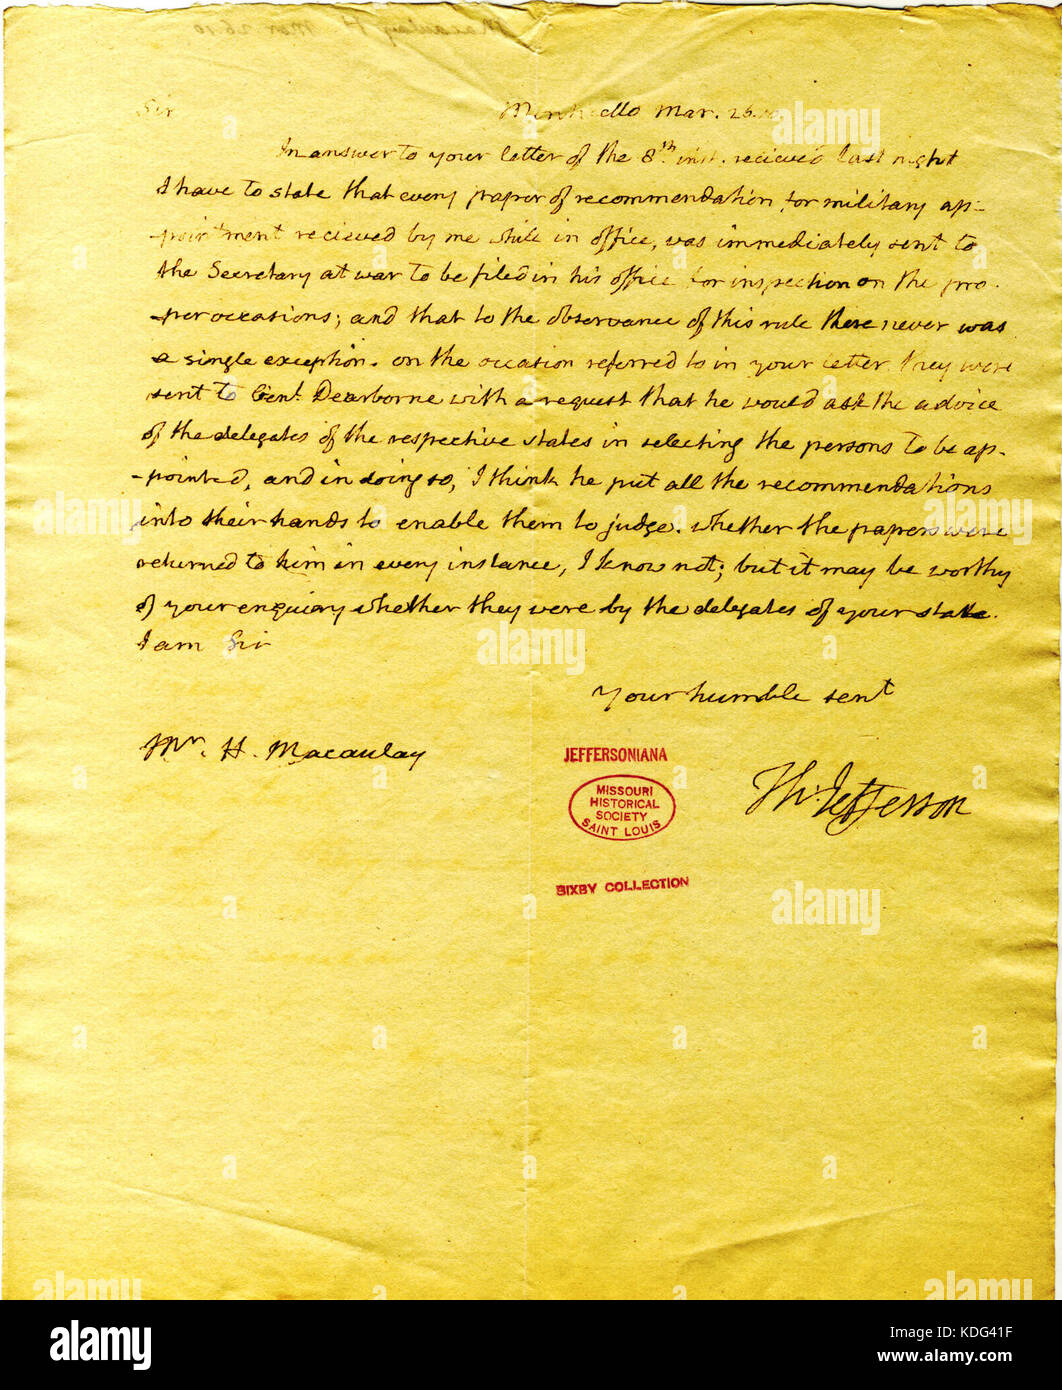 Sir Monticello Mar. 26. 10.
In answer to your letter of the 8th inst. recieved last night
I have to state that every paper of recommendation for military ap-
-pointment recieved by me while in office, was immediately sent to
the Secretary at war to be filed in his office for inspection on the pro-
-per occasions; and that to the observance of this rule there never was
a single exception. on the occasion referred to in your letter they were
sent to Genl. Dearborne with a request that he would ask the advice
of the delegates of the respective states in selecting the persons to be ap-
-pointed, and in doing so, I think he put all the recommendations
into their hands to enable them to judge. whether the papers were
returned to him in every instance, I know not; but it may be worthy
of your enquiry whether they were by the delegates of your state.
I am Sir
Your humble servt
Mr. H. Macaulay
Th: Jefferson
JEFFERSONIANA
MISSOURI
HISTORICAL
SOCIETY
SAINT LOUIS
BIXBY COLLECTION
alamy
a
alamy
Image ID: KDG41F
www.alamy.com